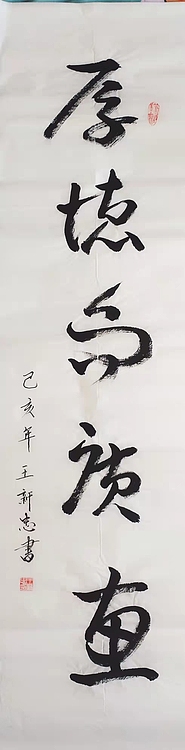 厚德而廣惠
己亥年王新忠書